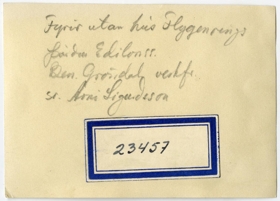 Fyrir utan hús Flygenrings
Edilonss.
Ben. Gröndal, verkfr.
sr. Árni Sigurdsson
23457